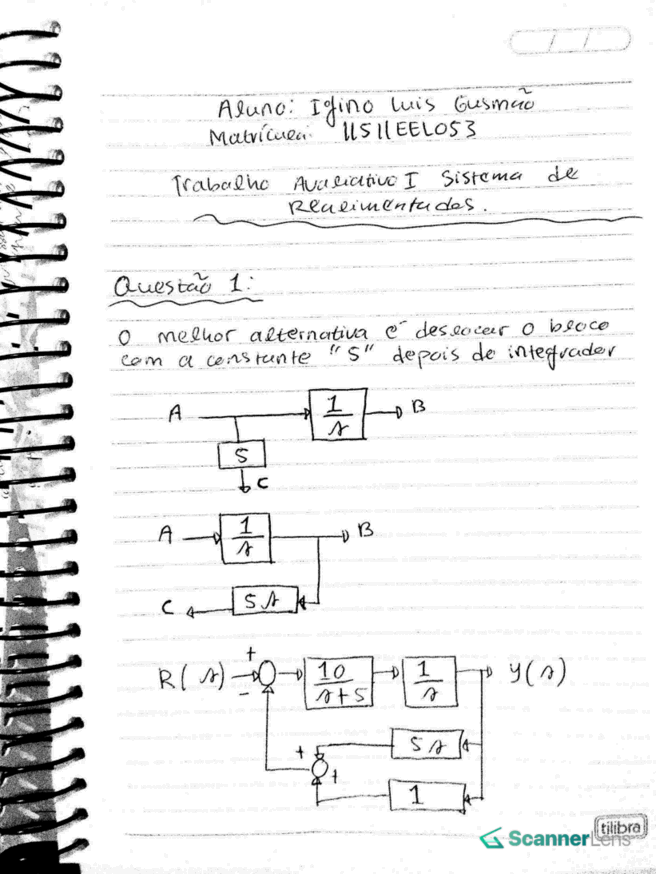 Aluno: Igino Luis Gusmão
Matrícula: 11511EEL053
Trabalho Avaliativo I Sistema de
Realimentados.
Questão 1:
O melhor alternativa é deslocar o bloco
com a constante "5" depois de integrador
A 1/s B
5
C
A 1/s B
C 5s
R(s) + - 10/s+5 1/s Y(s)
+ 5s
+ 1
tilibra
ScannerLens